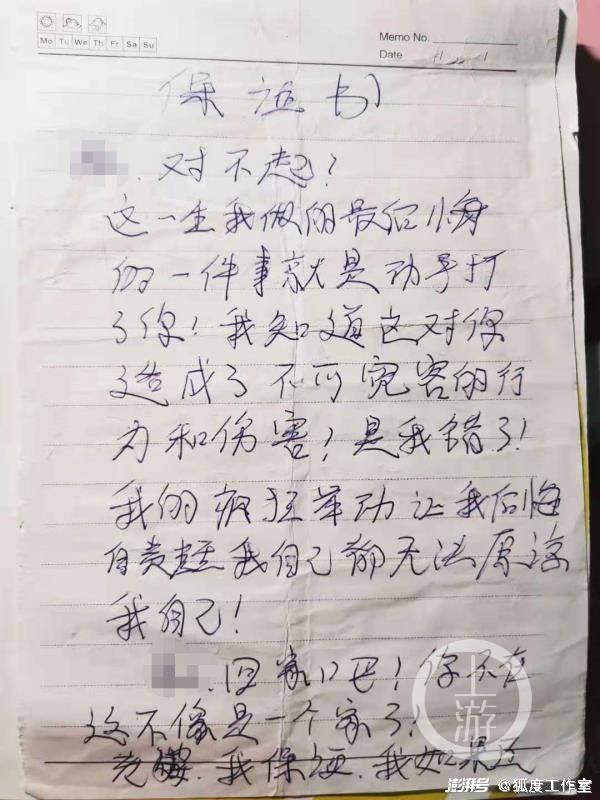 Mo Tu We Th Fr Sa Su
Memo No.
Date
保证书
对不起!
这一生我做的最后悔
的一件事就是动手打
了你!我知道这对你
造成了不可宽容的行
为和伤害!是我错了!
我的疯狂举动让我后悔
自责 我自己都无法原谅
我自己!
回家吧!你不在
这不像是一个家了!
我保证.我如果还
上游
澎湃号@狐度工作室